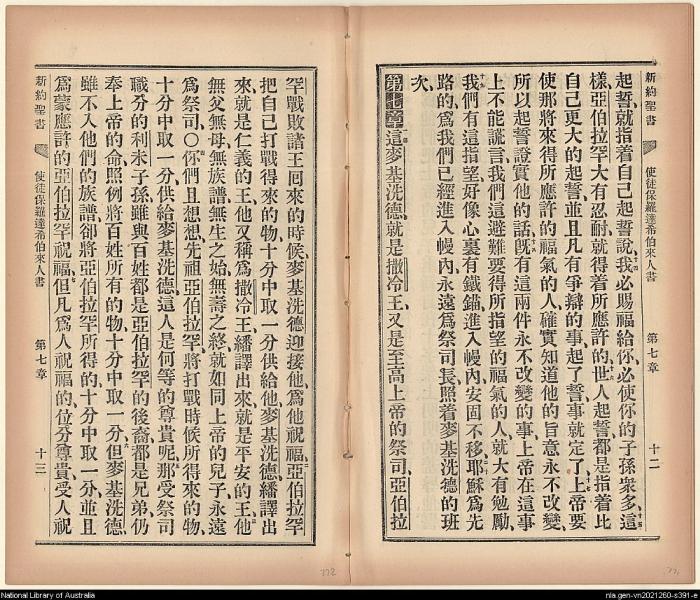 新約聖書 使徒保羅達希伯來人書 第七章 十二
起誓、就指着自己起誓說、我必賜福給你、必使你的子孫衆多、這
樣、亞伯拉罕大有忍耐、就得着所應許的、世人起誓、都是指着比
自己更大的起誓、並且凡有爭辯的事、起了誓、事就定了、上帝要
使那將來得所應許的福氣的人、確實知道他的旨意永不改變、
所以起誓證實他的話、旣有這兩件永不改變的事、上帝在這事
上不能謊言、我們這避難要得所指望的福氣的人、就大有勉勵、
我們有這指望、好像心裏有鐵錨、進入幔內、安固不移、耶穌爲先
路的、爲我們已經進入幔內、永遠爲祭司長、照着麥基洗德的班
次、
第七章 這麥基洗德、就是撒冷王、又是至高上帝的祭司、亞伯拉
罕戰敗諸王回來的時候、麥基洗德迎接他、爲他祝福、亞伯拉罕
把自己打戰得來的物、十分中取一分供給他、麥基洗德繙譯出
來、就是仁義的王、他又稱爲撒冷王、繙譯出來、就是平安的王、他
無父無母、無族譜、無生之始、無壽之終、就如同上帝的兒子、永遠
爲祭司、〇你們且想想、先祖亞伯拉罕、將打戰時候所得來的物、
十分中取一分、供給麥基洗德、這人是何等的尊貴呢、那受祭司
職分的利未子孫、雖與百姓都是亞伯拉罕的後裔、都是兄弟、仍
奉上帝的命、照例將百姓所有的物、十分中取一分、但麥基洗德
雖不入他們的族譜、卻將亞伯拉罕所得的、十分中取一分、並且
爲蒙應許的亞伯拉罕祝福、但凡爲人祝福的、位分尊貴、受人祝
新約聖書 使徒保羅達希伯來人書 第七章 十三
National Library of Australia
nla.gen-vn2021260-s391-e